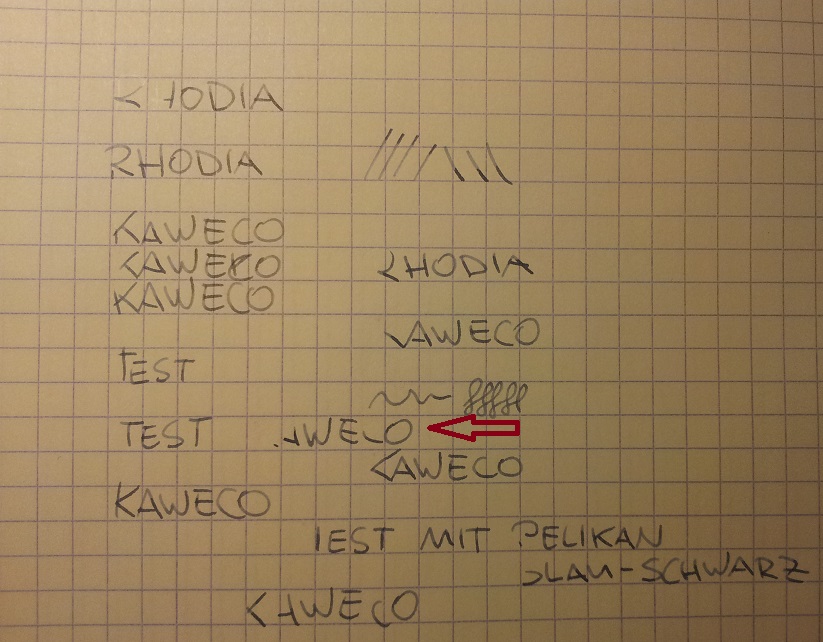 RHODIA
RHODIA
KAWECO
KAWECO
KAWECO
RHODIA
KAWECO
TEST
TEST
KAWECO
KAWECO
KAWECO
TEST MIT PELIKAN
BLAU-SCHWARZ
KAWECO